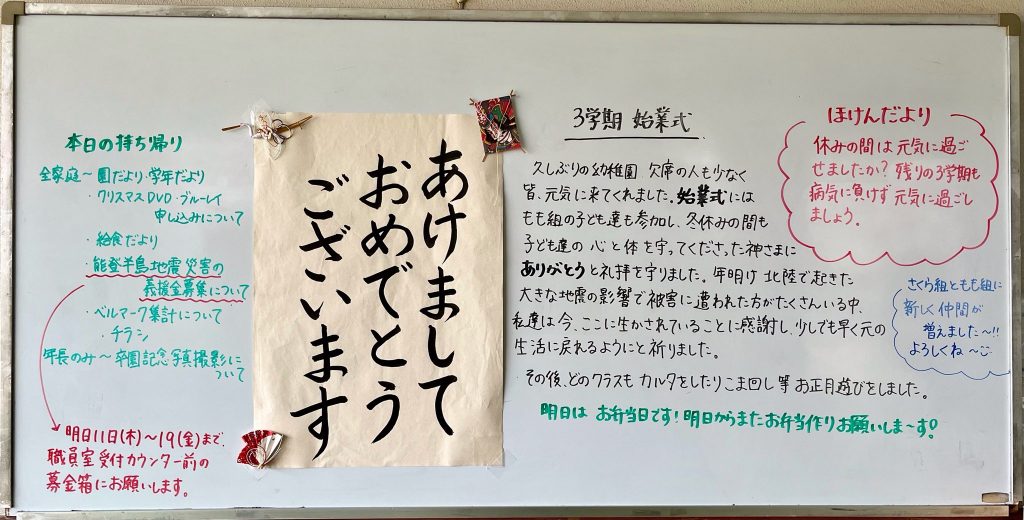 本日の持ち帰り
全家庭～園だより、学年だより
・クリスマスDVD・ブルーレイ
申し込みについて
・給食だより
・能登半島地震災害の
義援金募集について
・ベルマーク集計について
・チラシ
年長のみ～卒園記念写真撮影に
ついて
明日11日(木)～19(金)まで、
職員室受付カウンター前の
募金箱にお願いします。
あけまして
おめでとう
ございます
3学期 始業式
久しぶりの幼稚園 欠席の人も少なく
皆、元気に来てくれました。始業式には
もも組の子ども達も参加し、冬休みの間も
子ども達の心と体を守ってくださった神さまに
ありがとうと礼拝を守りました。年明け 北陸で起きた
大きな地震の影響で被害に遭われた方がたくさんいる中、
私達は今、ここに生かされていることに感謝し、少しでも早く元の
生活に戻れるようにと祈りました。
・その後、どのクラスも カルタをしたり こま回し 等 お正月遊びをしました。
明日は お弁当日です!明日からまたお弁当作りお願いしま〜す!
ほけんだより
休みの間は元気に過ご
せましたか?残りの3学期も
病気に負けず 元気に過ごし
ましょう。
さくら組ともも組に
新しく仲間が
増えました〜!!
よろしくね〜